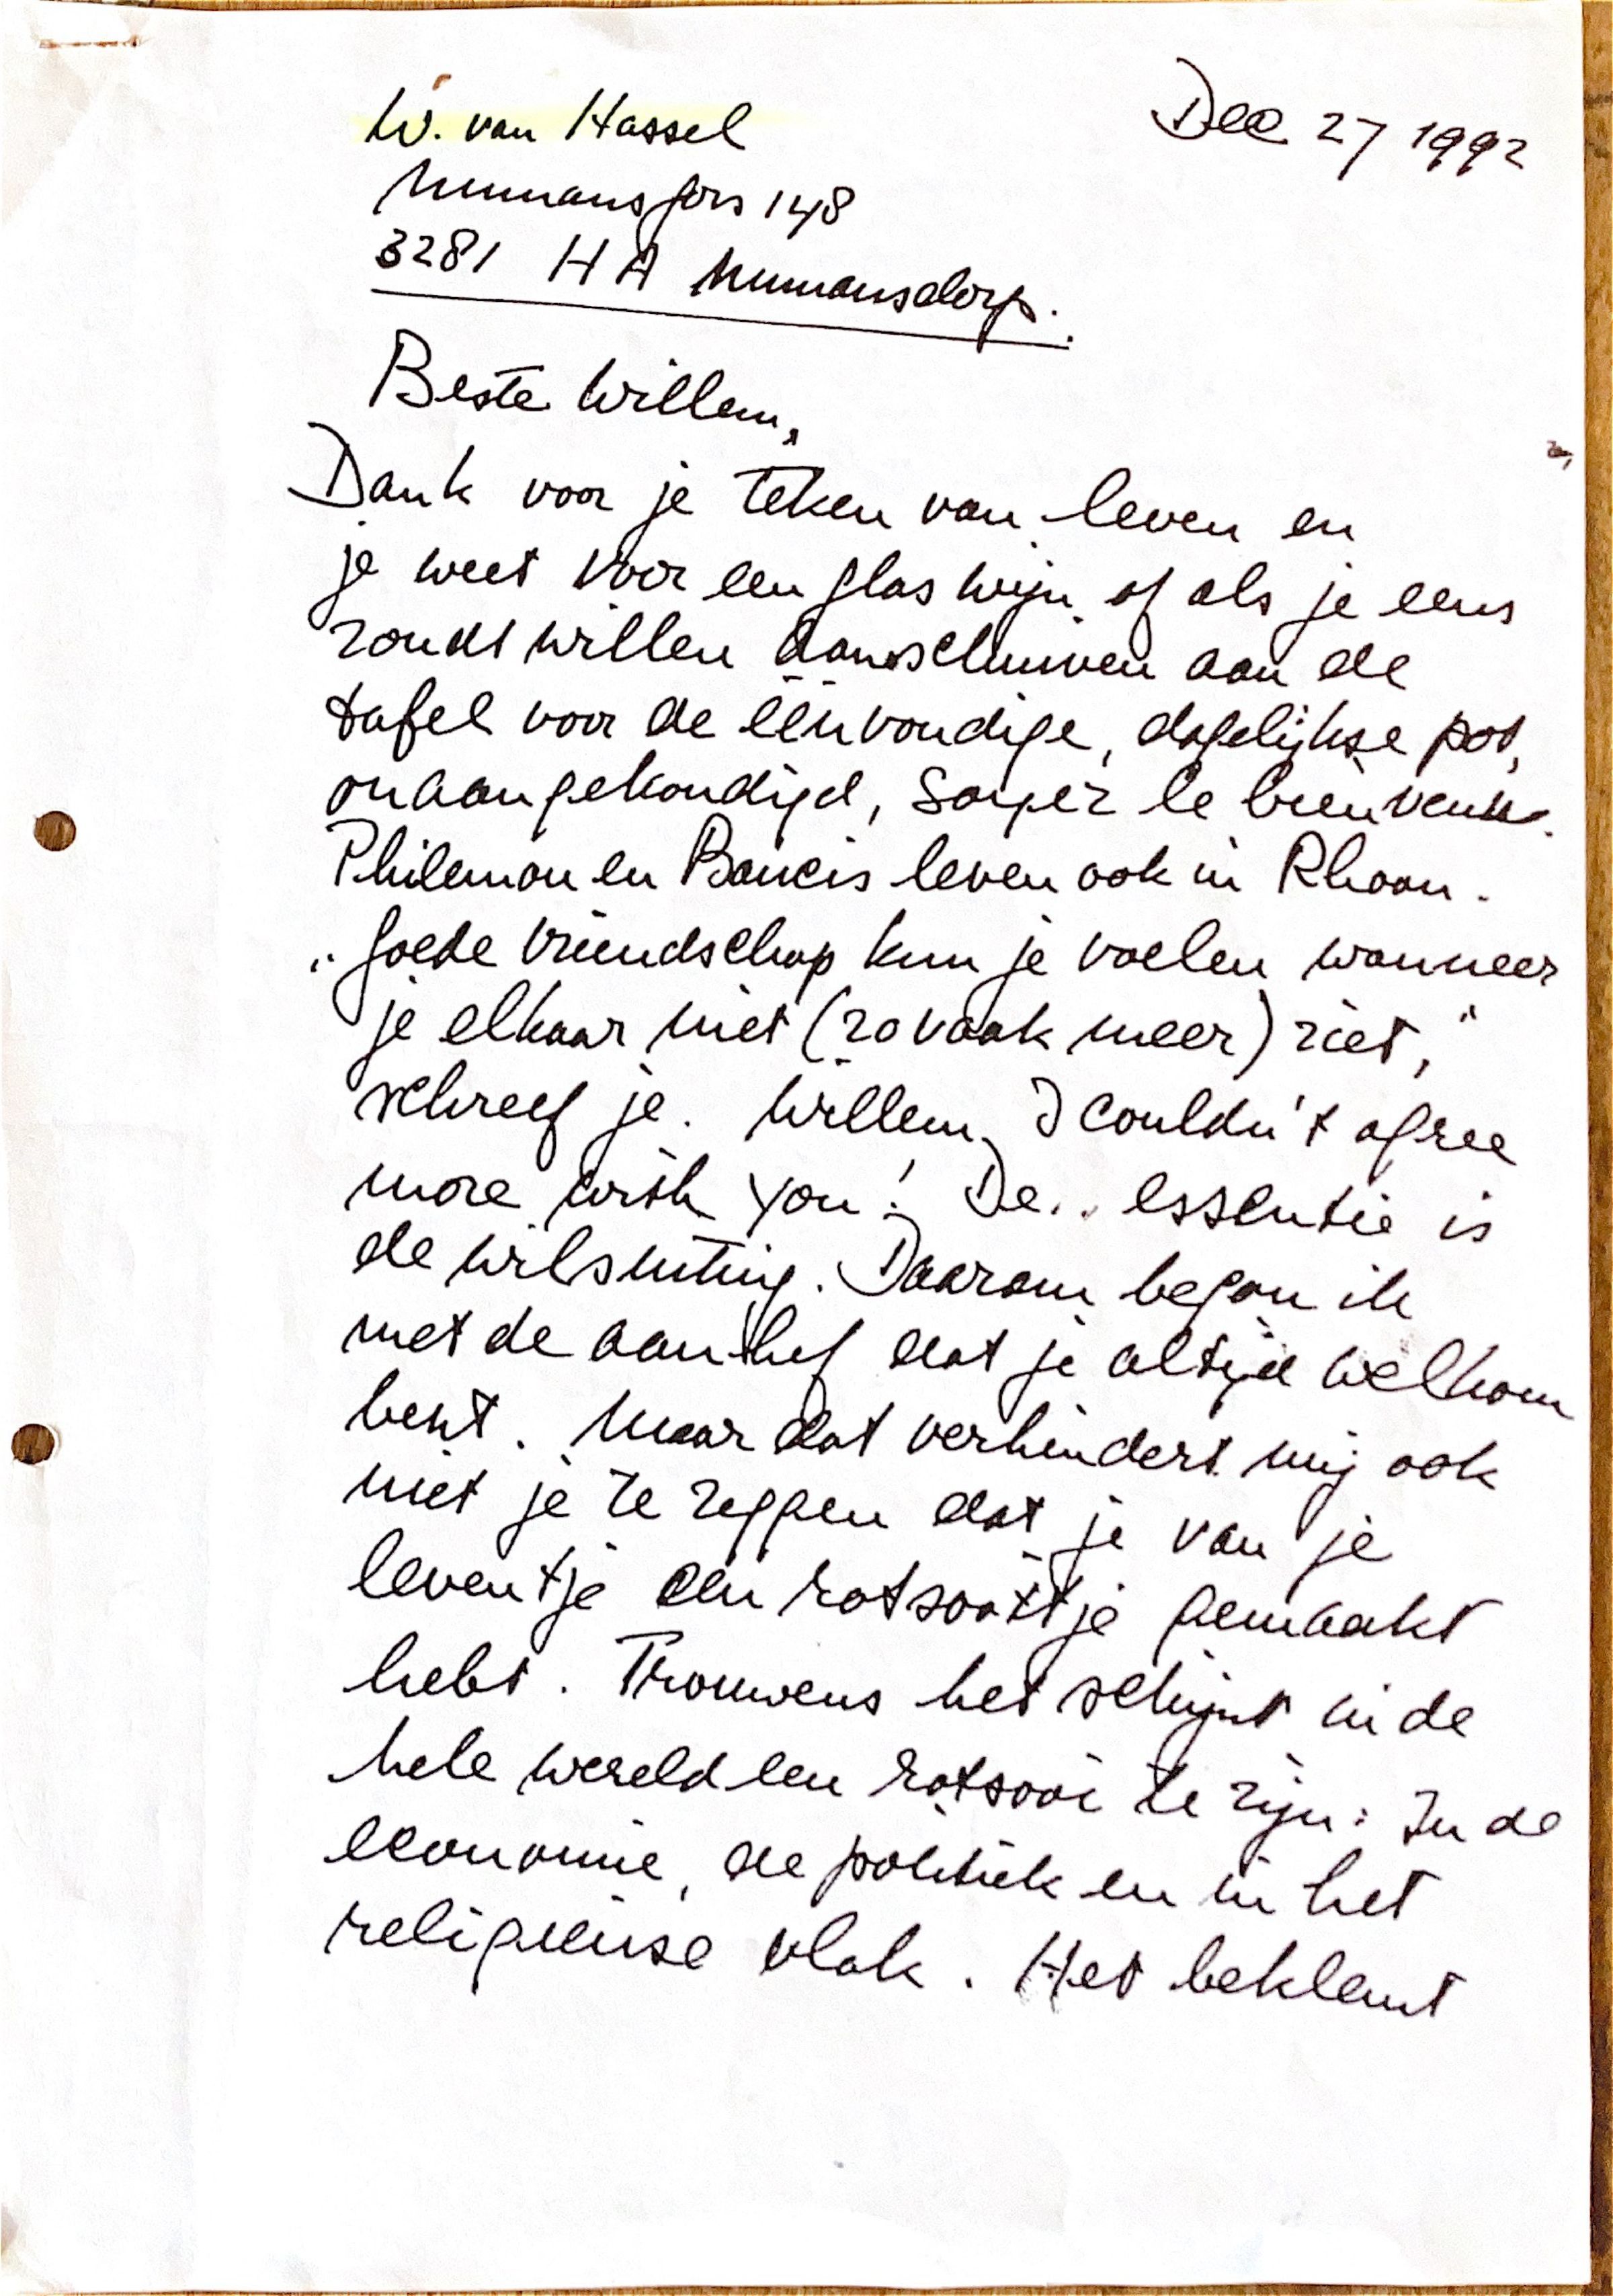 W. van Hassel
Dec 27 1992
Numansgors 148
3281 HA Numansdorp.
Beste Willem,
Dank voor je teken van leven en
je weet voor een glas wijn of als je eens
zoudt willen aanschuiven aan de
tafel voor de éénvoudige, dagelijkse pot,
onaangekondigd, soyez le bienvenu.
Philemon en Baucis leven ook in Rhoon.
"Goede vriendschap kun je voelen wanneer
je elkaar niet (zo vaak meer) ziet,"
schreef je. Willem, I couldn't agree
more with you! De.. essentie is
de wilsuiting. Daarom begon ik
met de aanhef dat je altijd welkom
bent. Maar dat verhindert mij ook
niet je te zeggen dat je van je
leventje een rotsooitje gemaakt
hebt. Trouwens het schijnt in de
hele wereld een rotsooi te zijn: In de
economie, de politiek en in het
religieuse vlak. Het beklemt